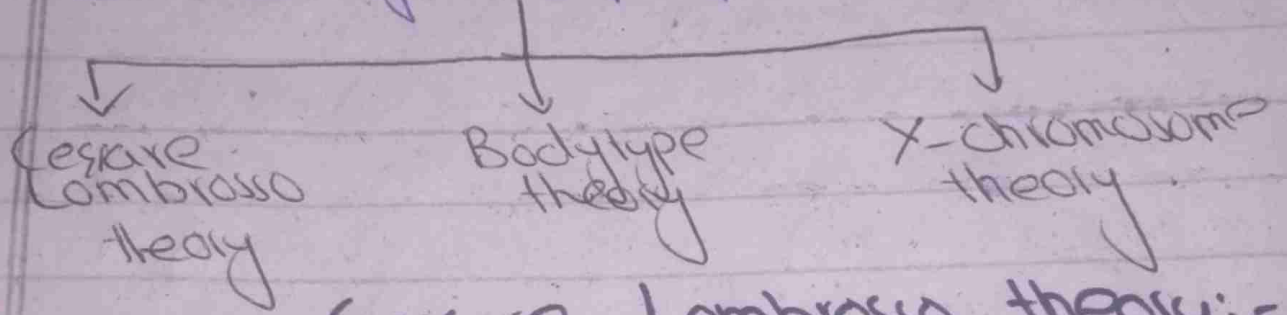 Cesrare
Lombrosso
theory
Bodytype
theory
X-chromosome
theory.
Lombrosso theory:-